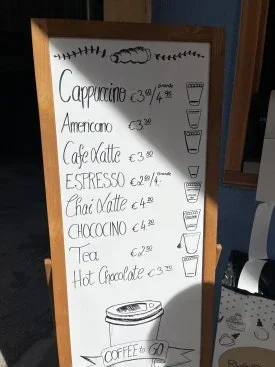 Cappuccino €3.60/4.90 Grande
Americano €3.30
Cafe Latte €3.80
ESPRESSO €2.80/4.
Chai Latte €4.20
CHOCOCINO €4.20
Tea €2.50
Hot Chocolate €3.70
COFFEE to GO